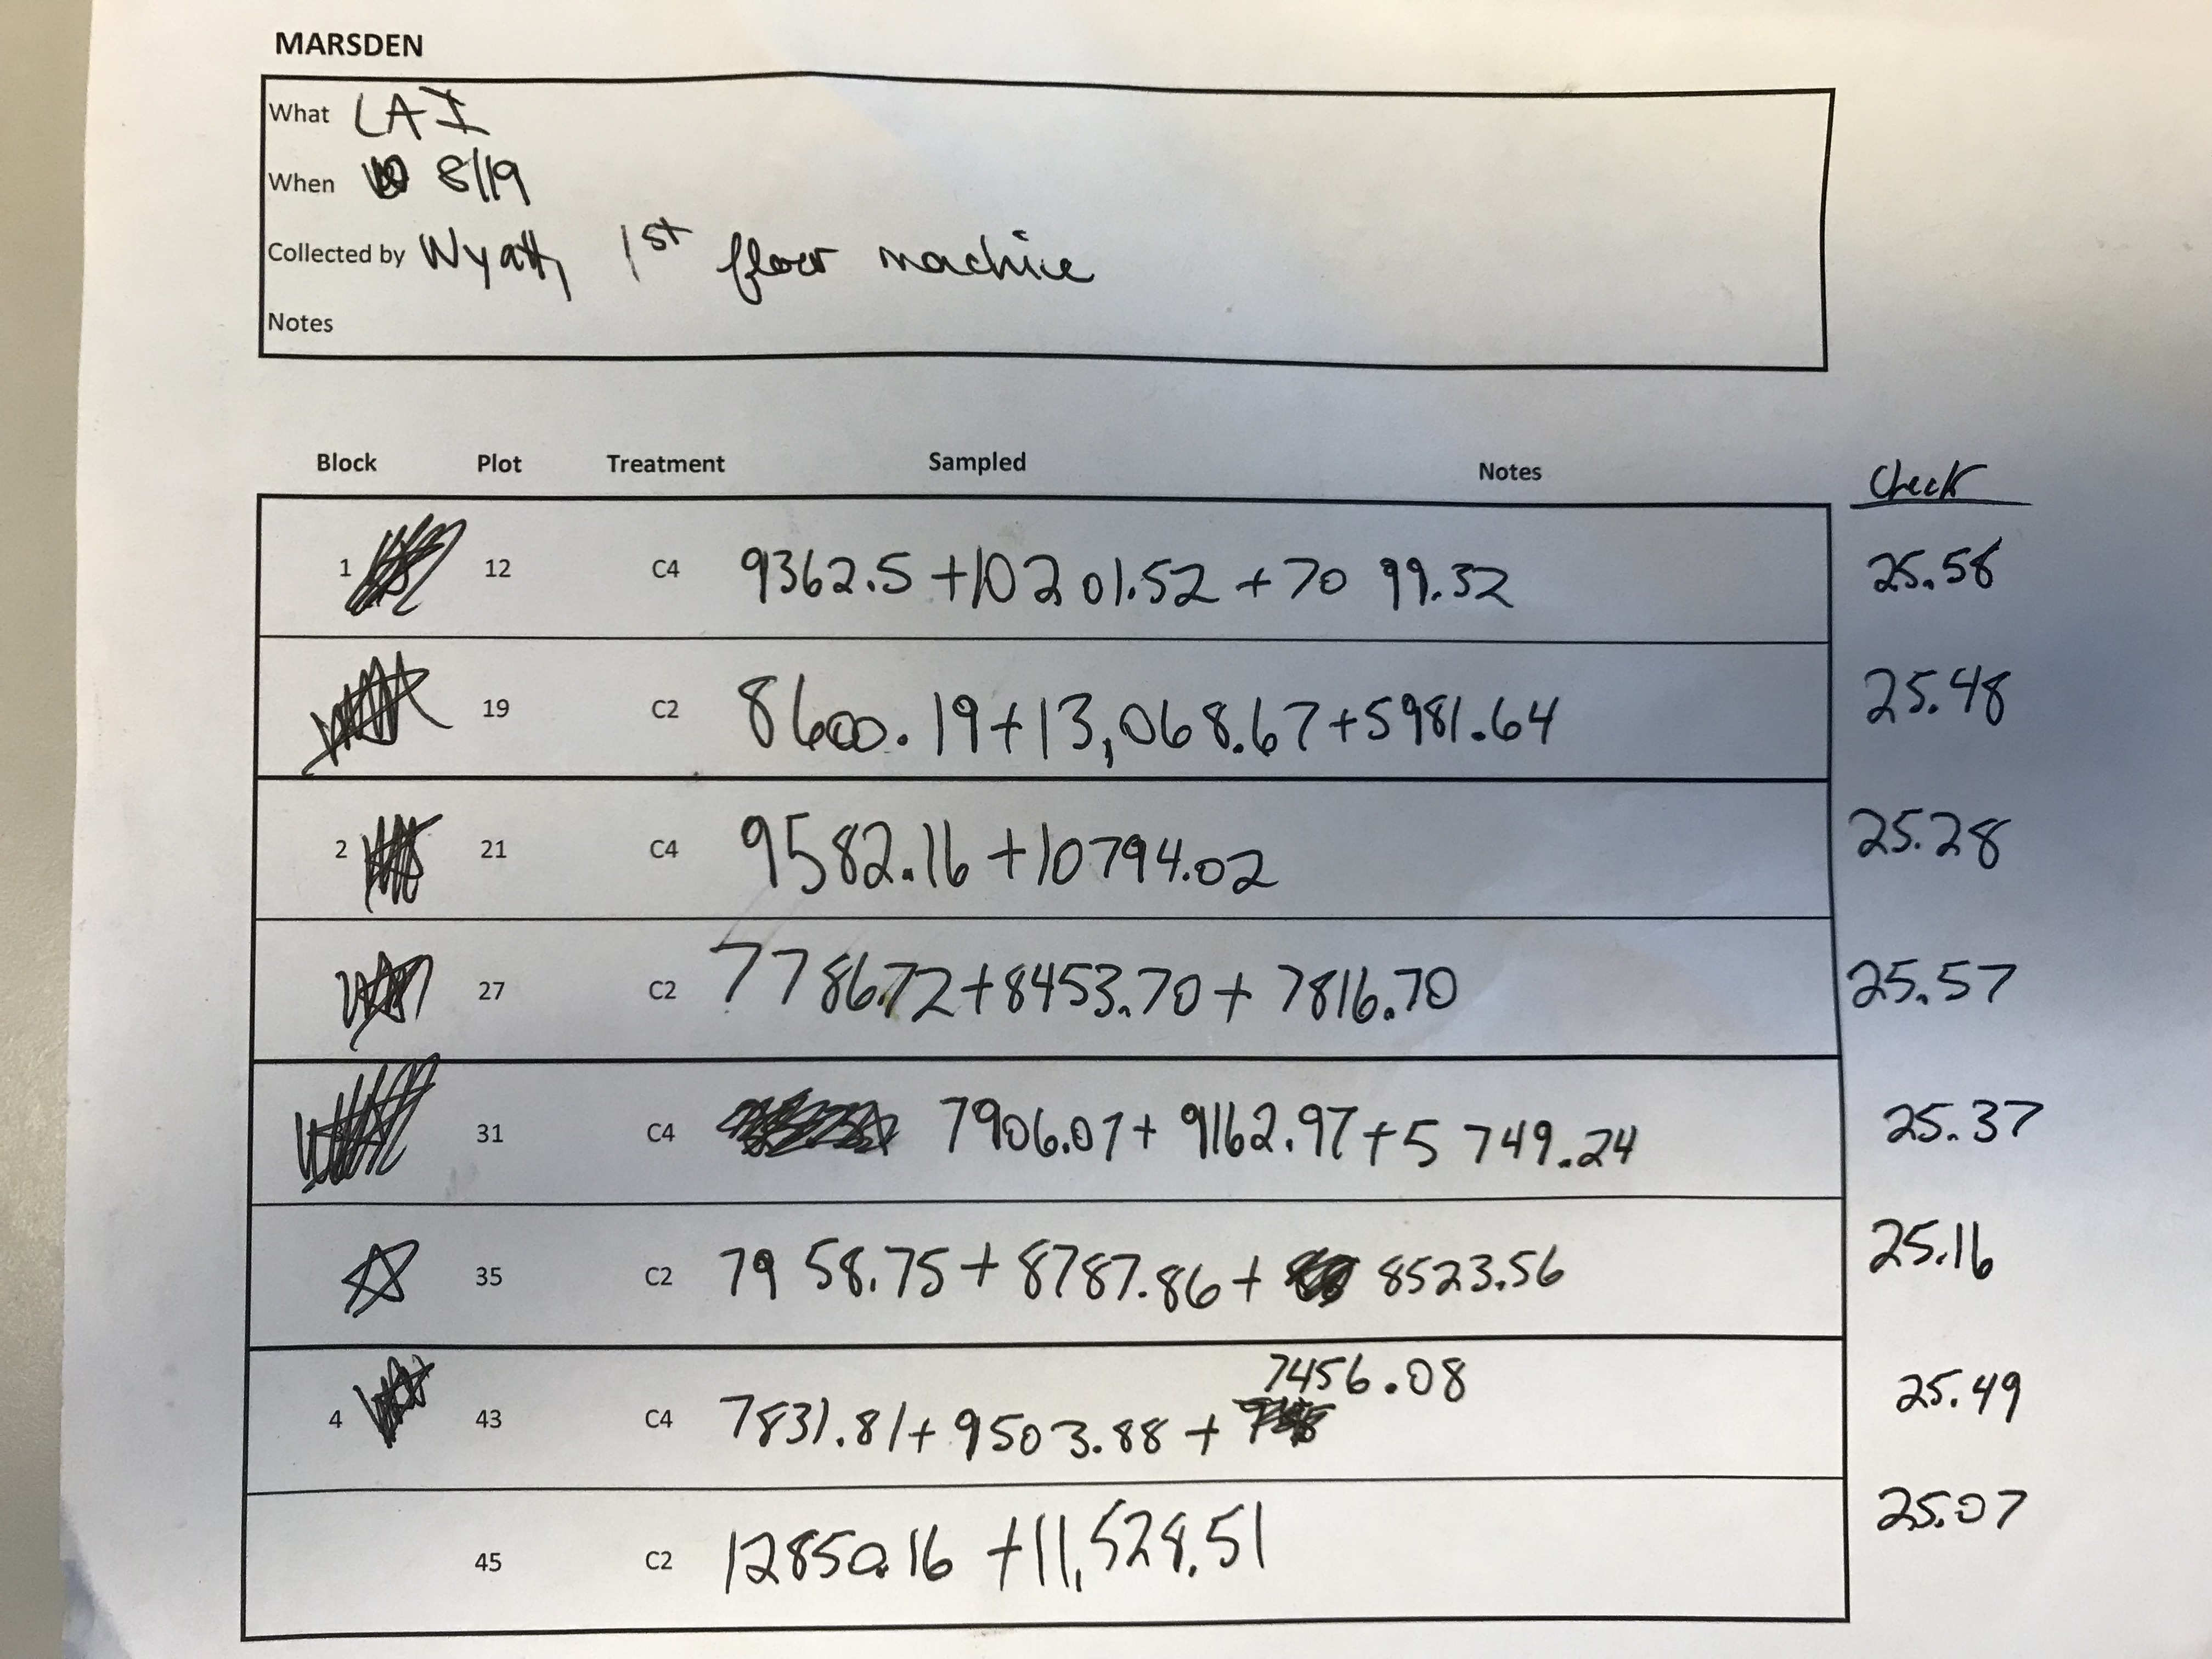 MARSDEN
What LAI
When 8/19
Collected by Wyatt, 1st floor machine
Notes
Block Plot Treatment Sampled Notes Check
1 12 C4 9362.5 + 10201.52 + 7099.32 25.58
19 C2 8600.19 + 13,068.67 + 5981.64 25.48
2 21 C4 9582.16 + 10794.02 25.28
27 C2 7786.72 + 8453.70 + 7816.70 25.57
31 C4 7906.07 + 9162.97 + 5749.24 25.37
35 C2 7958.75 + 8787.86 + 8523.56 25.16
7456.08
4 43 C4 7831.81 + 9503.88 + 25.49
45 C2 12850.16 + 11,528.51 25.07